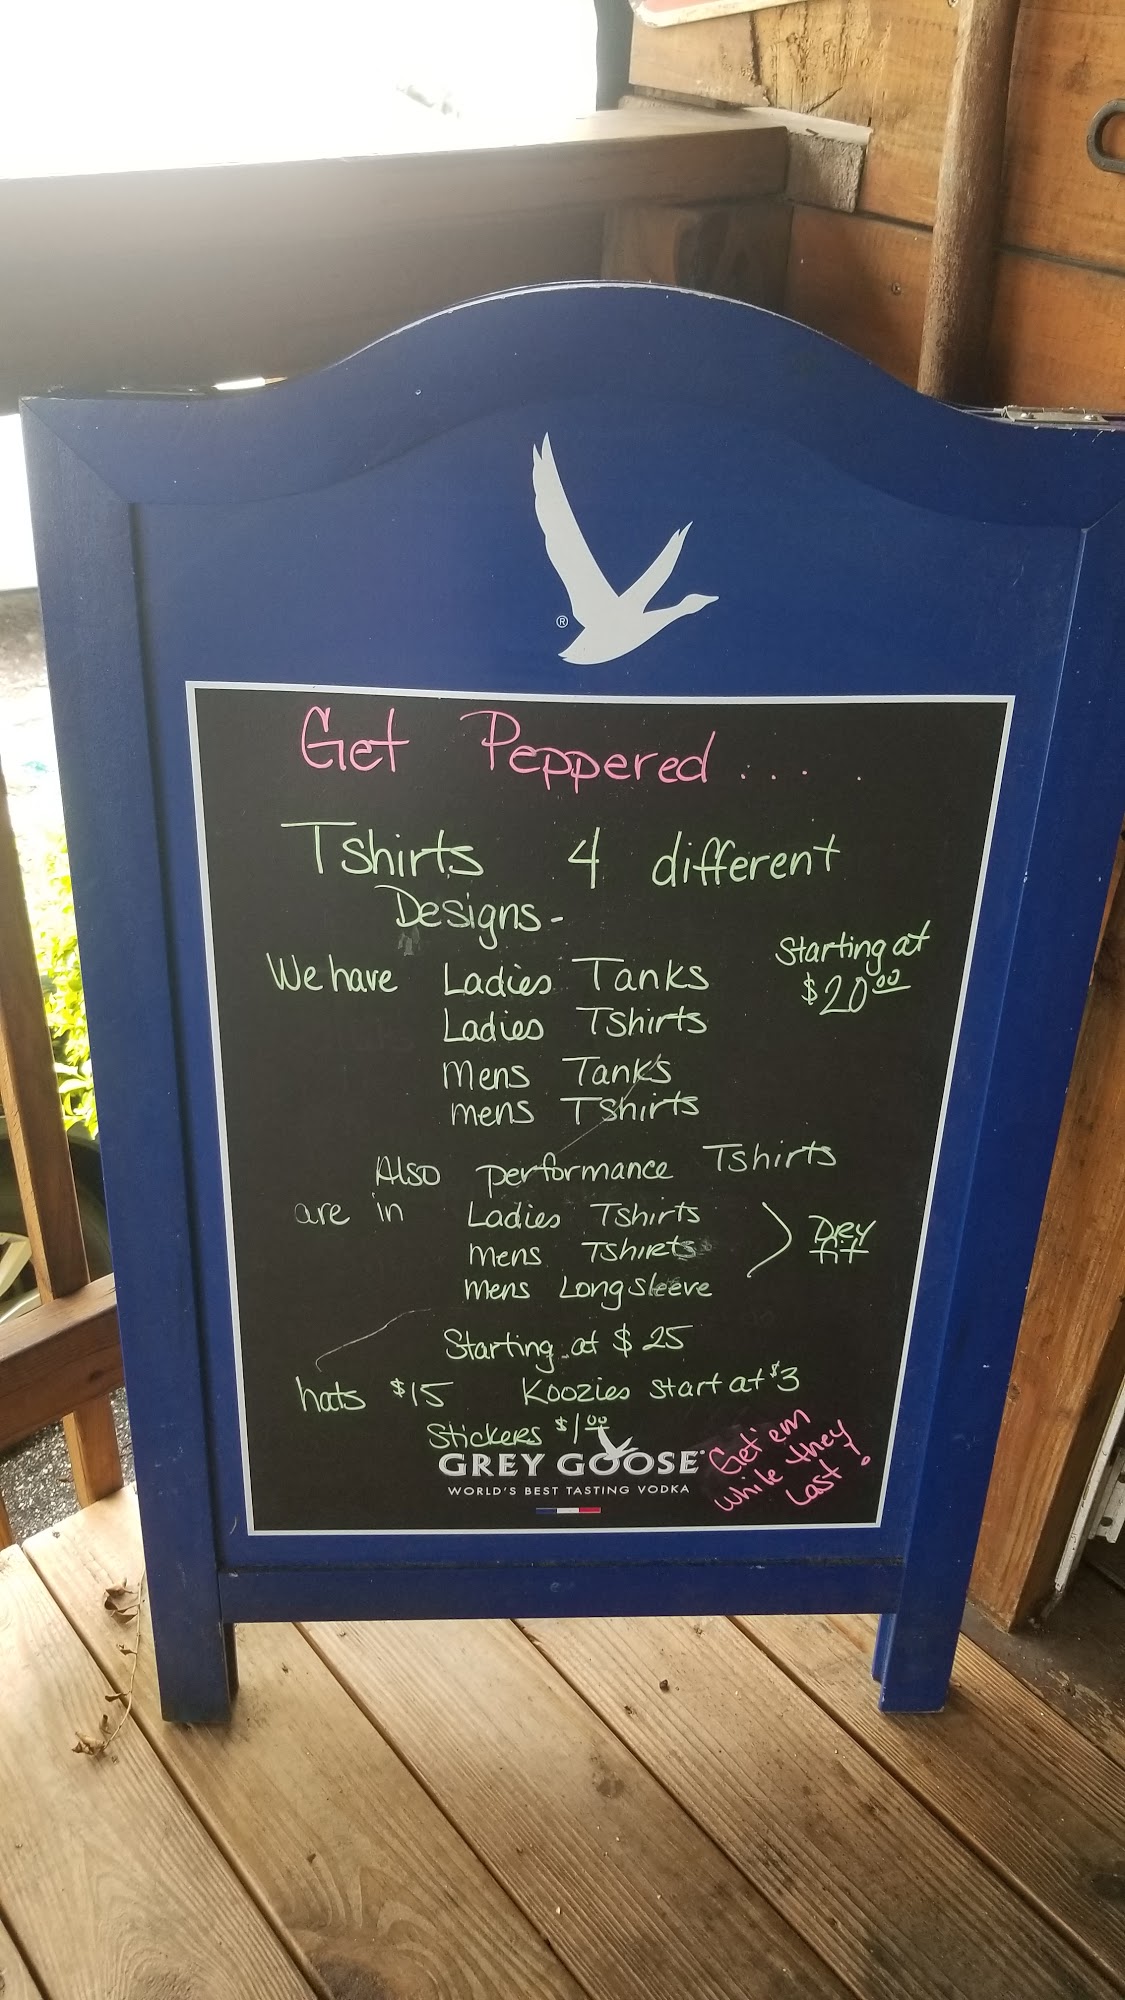 ®
Get Peppered ....
Tshirts 4 different
Designs-
We have Ladies Tanks
Starting at
$20.00
Ladies Tshirts
mens Tanks
mens Tshirts
Also performance Tshirts
are in Ladies Tshirts
mens Tshirts
mens Long sleeve
Dry
fit
Starting at $25
hats $15 Koozies start at $3
Stickers $1.00
GREY GOOSE
WORLD'S BEST TASTING VODKA
Get'em
while they
Last!